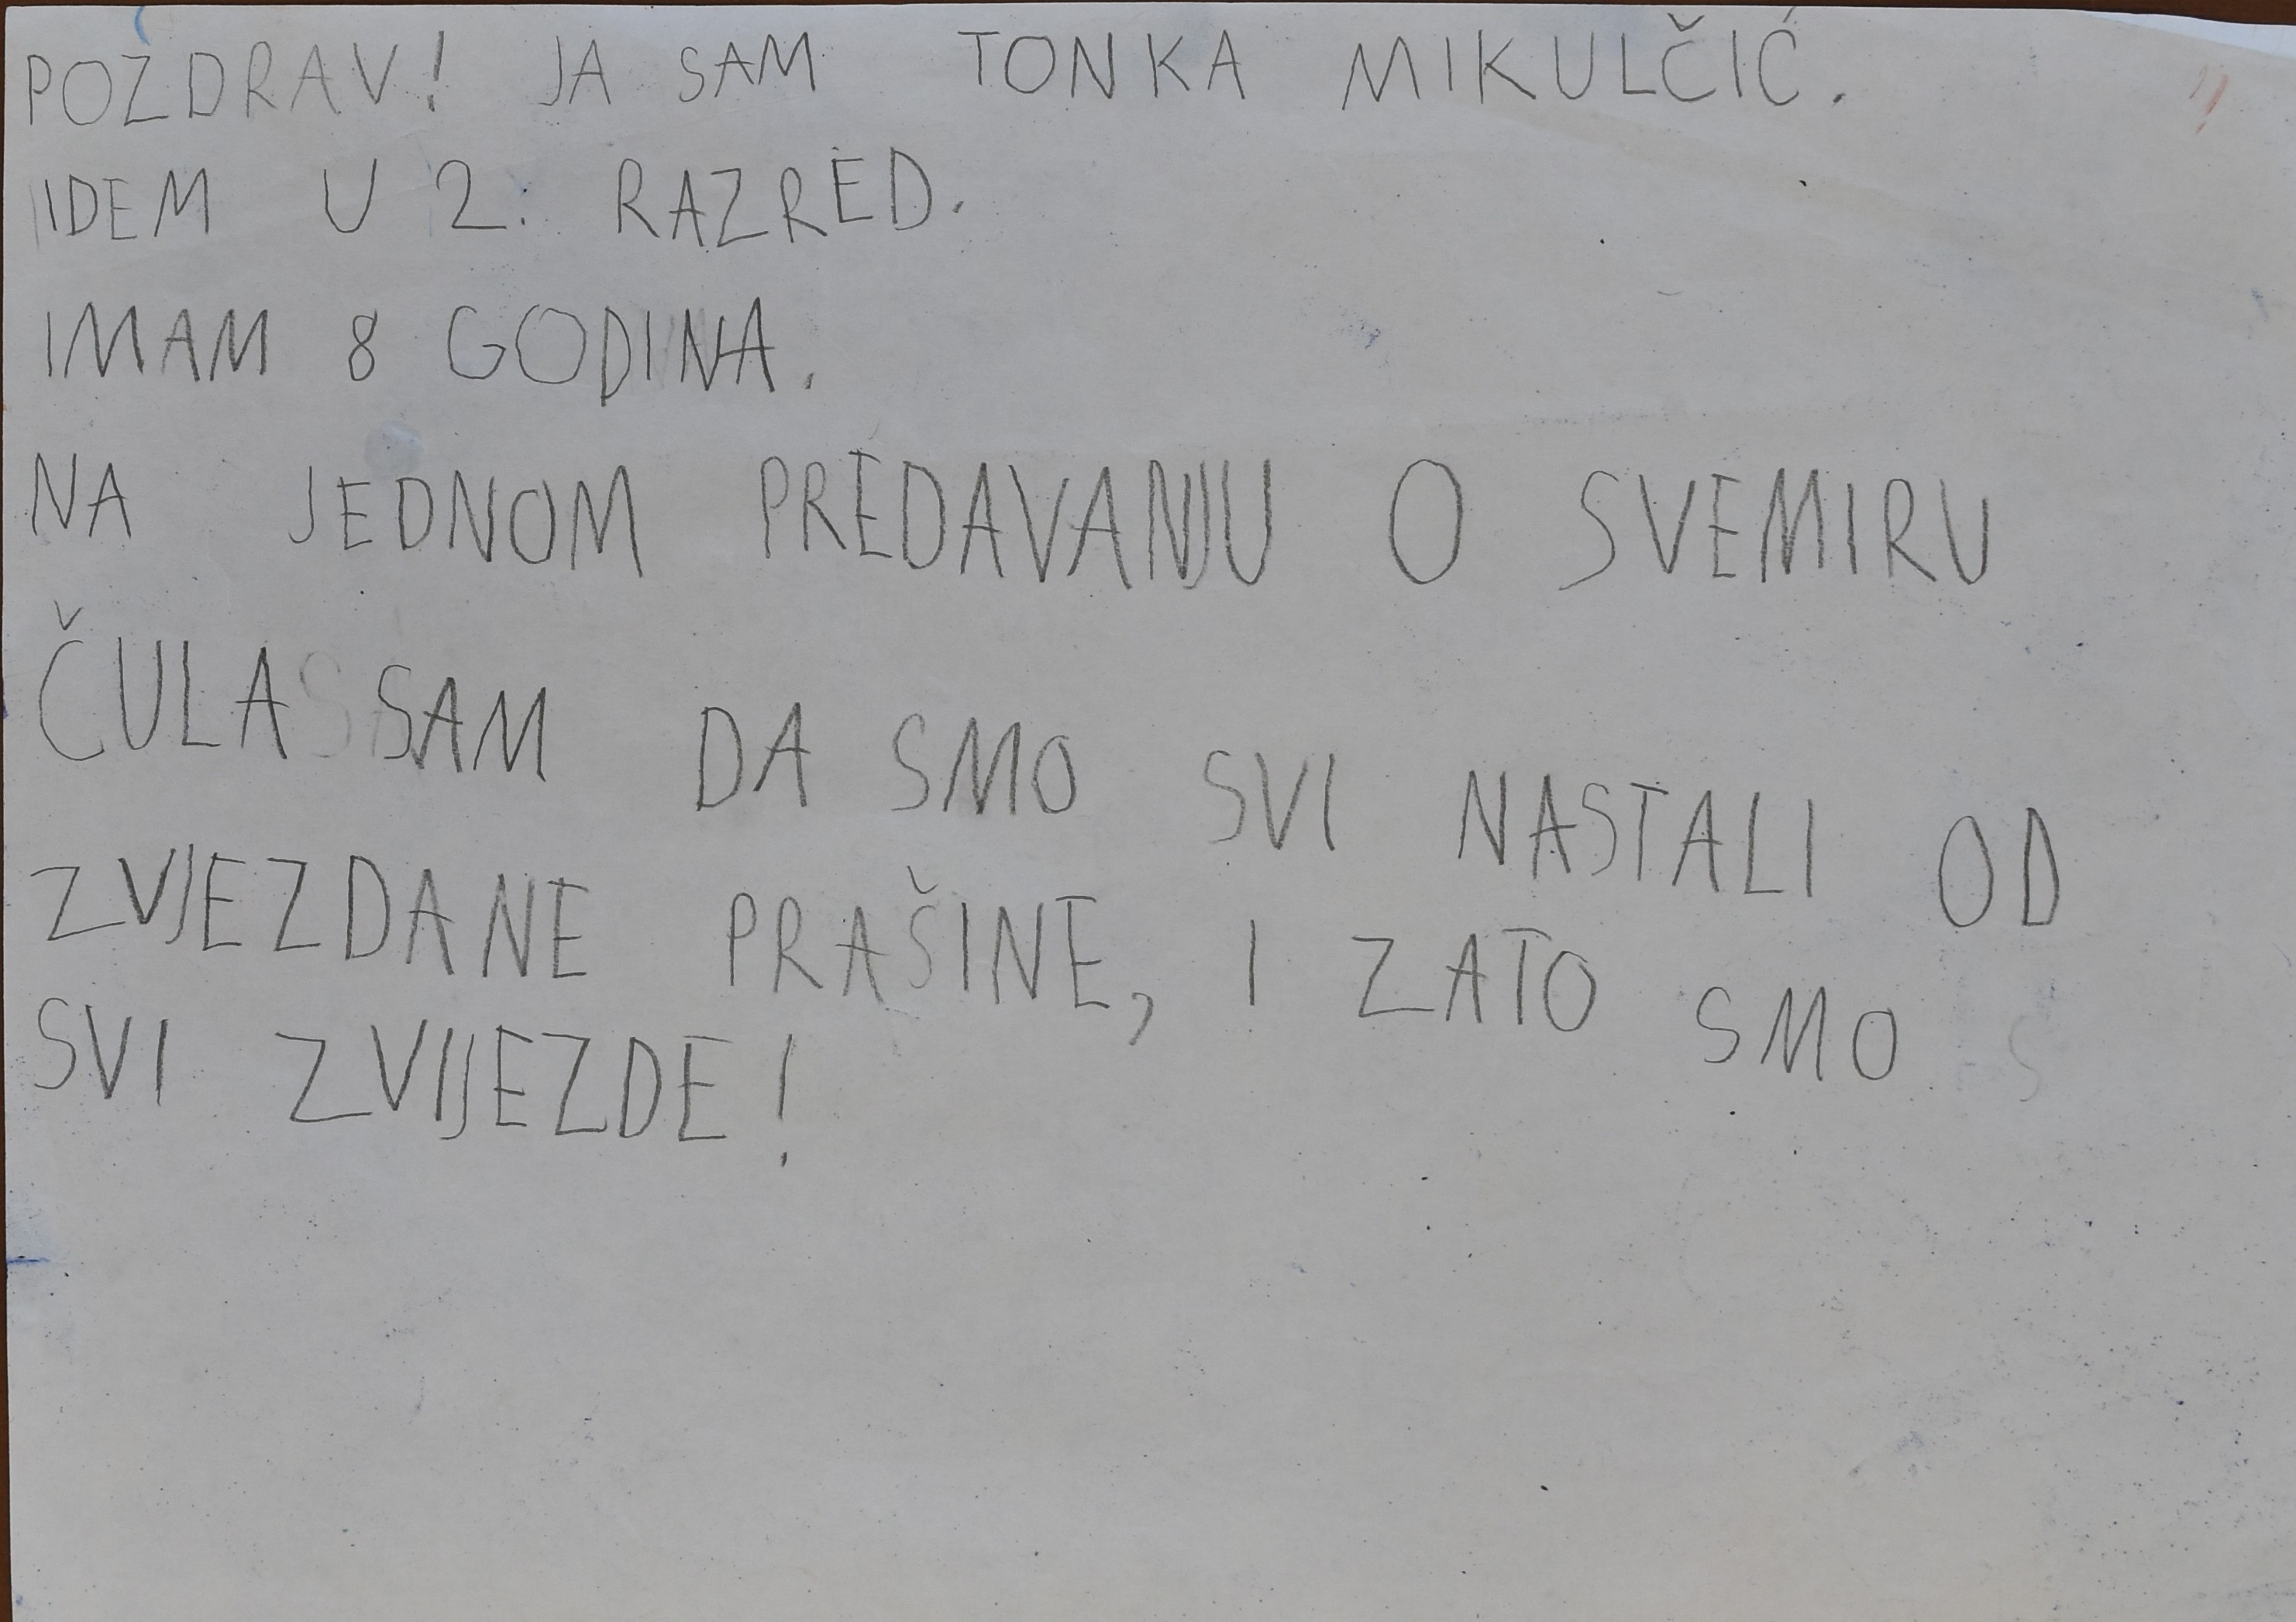 POZDRAV! JA SAM TONKA MIKULČIĆ.
IDEM U 2. RAZRED.
IMAM 8 GODINA.
NA JEDNOM PREDAVANJU O SVEMIRU
ČULA SAM DA SMO SVI NASTALI OD
ZVJEZDANE PRAŠINE, I ZATO SMO
SVI ZVIJEZDE!